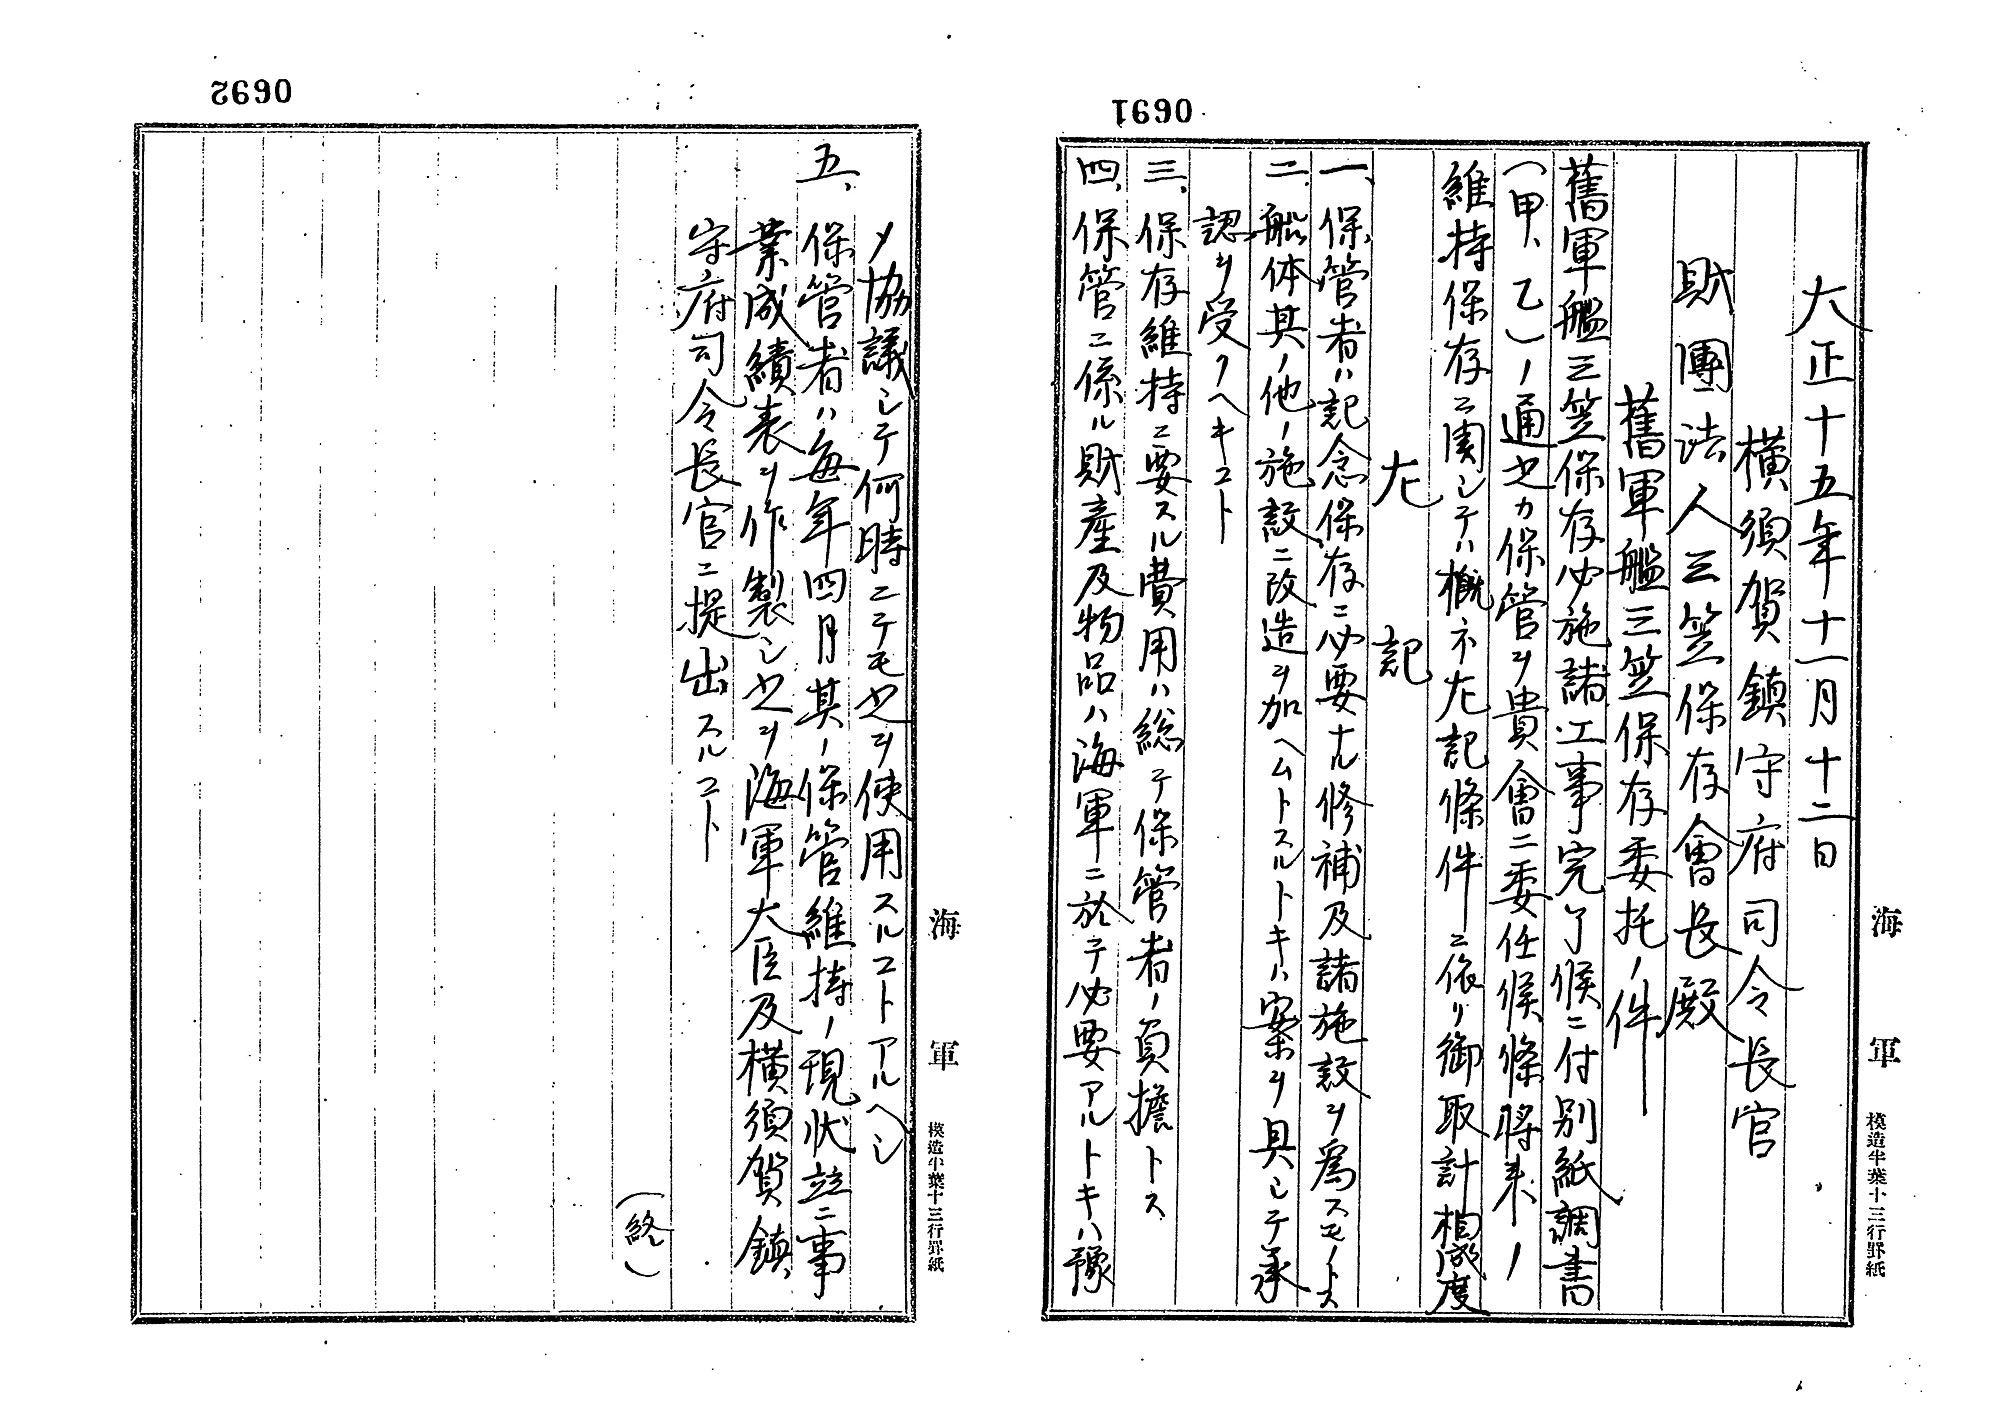 0691
大正十五年十一月十二日
横須賀鎮守府司令長官
財團法人三笠保存會長殿
舊軍艦三笠保存委托ノ件
舊軍艦三笠保存必施諸工事完了候ニ付別紙調書
(甲、乙)ノ通之カ保管ヲ貴會ニ委任候條將来ノ
維持保存ニ関シテハ概ネ左記條件ニ依リ御取計相成度
左記
一、保管者ハ記念保存ニ必要ナル修補及諸施設ヲ爲スモノトス
二、船体其ノ他ノ施設ニ改造ヲ加ヘムトスルトキハ案ヲ具シテ承
認ヲ受クヘキコト
三、保存維持ニ要スル費用ハ総テ保管者ノ負擔トス
四、保管ニ係ル財産及物品ハ海軍ニ於テ必要アルトキハ豫
海軍
模造半葉十三行罫紙
0692
メ協議シテ何時ニテモ之ヲ使用スルコトアルヘシ
五、保管者ハ毎年四月其ノ保管維持ノ現状竝ニ事
業成績表ヲ作製シ之ヲ海軍大臣及横須賀鎮
守府司令長官ニ提出スルコト
(終)
海軍
模造半葉十三行罫紙